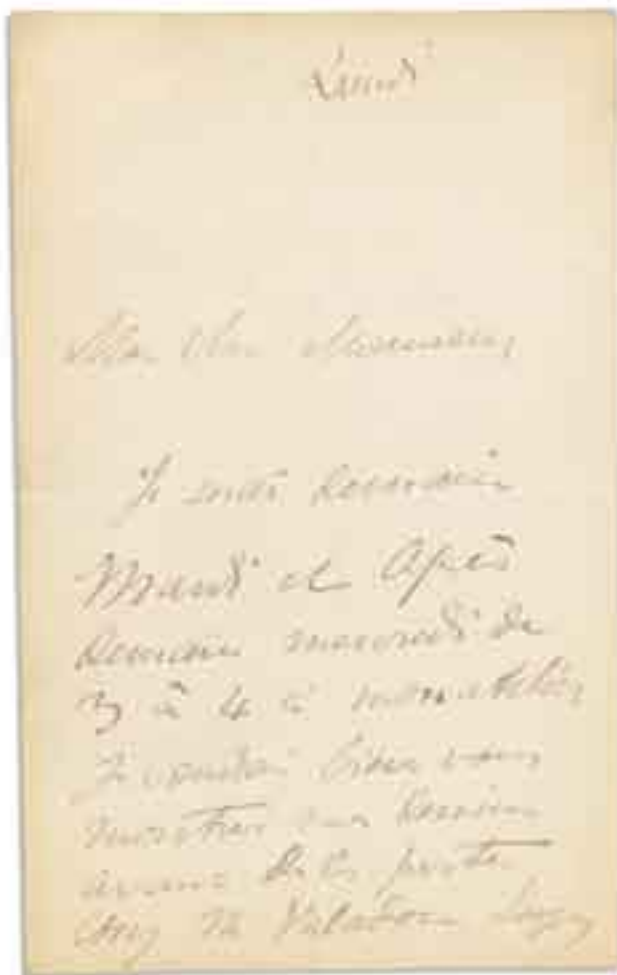 Lundi
Mon cher
Je serai demain
Mardi et Après
demain mercredi de
3 à 4 à mon atelier
Je voudrais bien vous
montrer un dessin
avant de